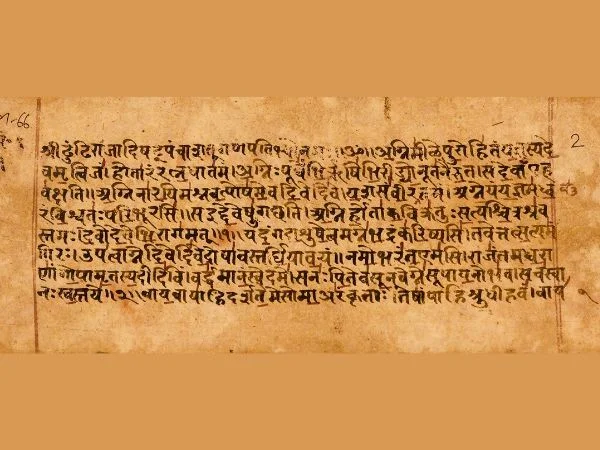 2
श्री ढुंढिराजादिषट्पंचाशत् गणपतिभ्यो नमः ॥ॐ॥ अग्निमीळे पुरोहितं यज्ञस्य दे
वमृत्विजं। होतारं रत्नधातमं। अग्निः पूर्वेभिर्ऋषिभिरीड्यो नूतनैरुत। स देवाँ एह
वक्षति॥ अग्निना रयिमश्नवत्पोषमेव दिवेदिवे। यशसं वीरवत्तमं। अग्ने यं यज्ञमध्व
रं विश्वतः परिभूरसि। स इद्देवेषु गच्छति। अग्निर्होता कविक्रतुः सत्यश्चित्रश्रव
स्तमः। देवो देवेभिरागमत्॥१॥ यदंग दाशुषे त्वमग्ने भद्रं करिष्यसि। तवेत्तत्सत्यमं
गिरः। उप त्वाग्ने दिवेदिवे दोषावस्तर्धिया वयं। नमो भरंत एमसि। राजंतमध्वरा
णां गोपामृतस्य दीदिविं। वर्द्धमानं स्वे दमे। स नः पितेव सूनवेग्ने सूपायनो भव। सचस्वा
नः स्वस्तये॥२॥ वायवा याहि दर्शतेमे सोमा अरंकृताः। तेषां पाहि श्रुधी हवं। वाय